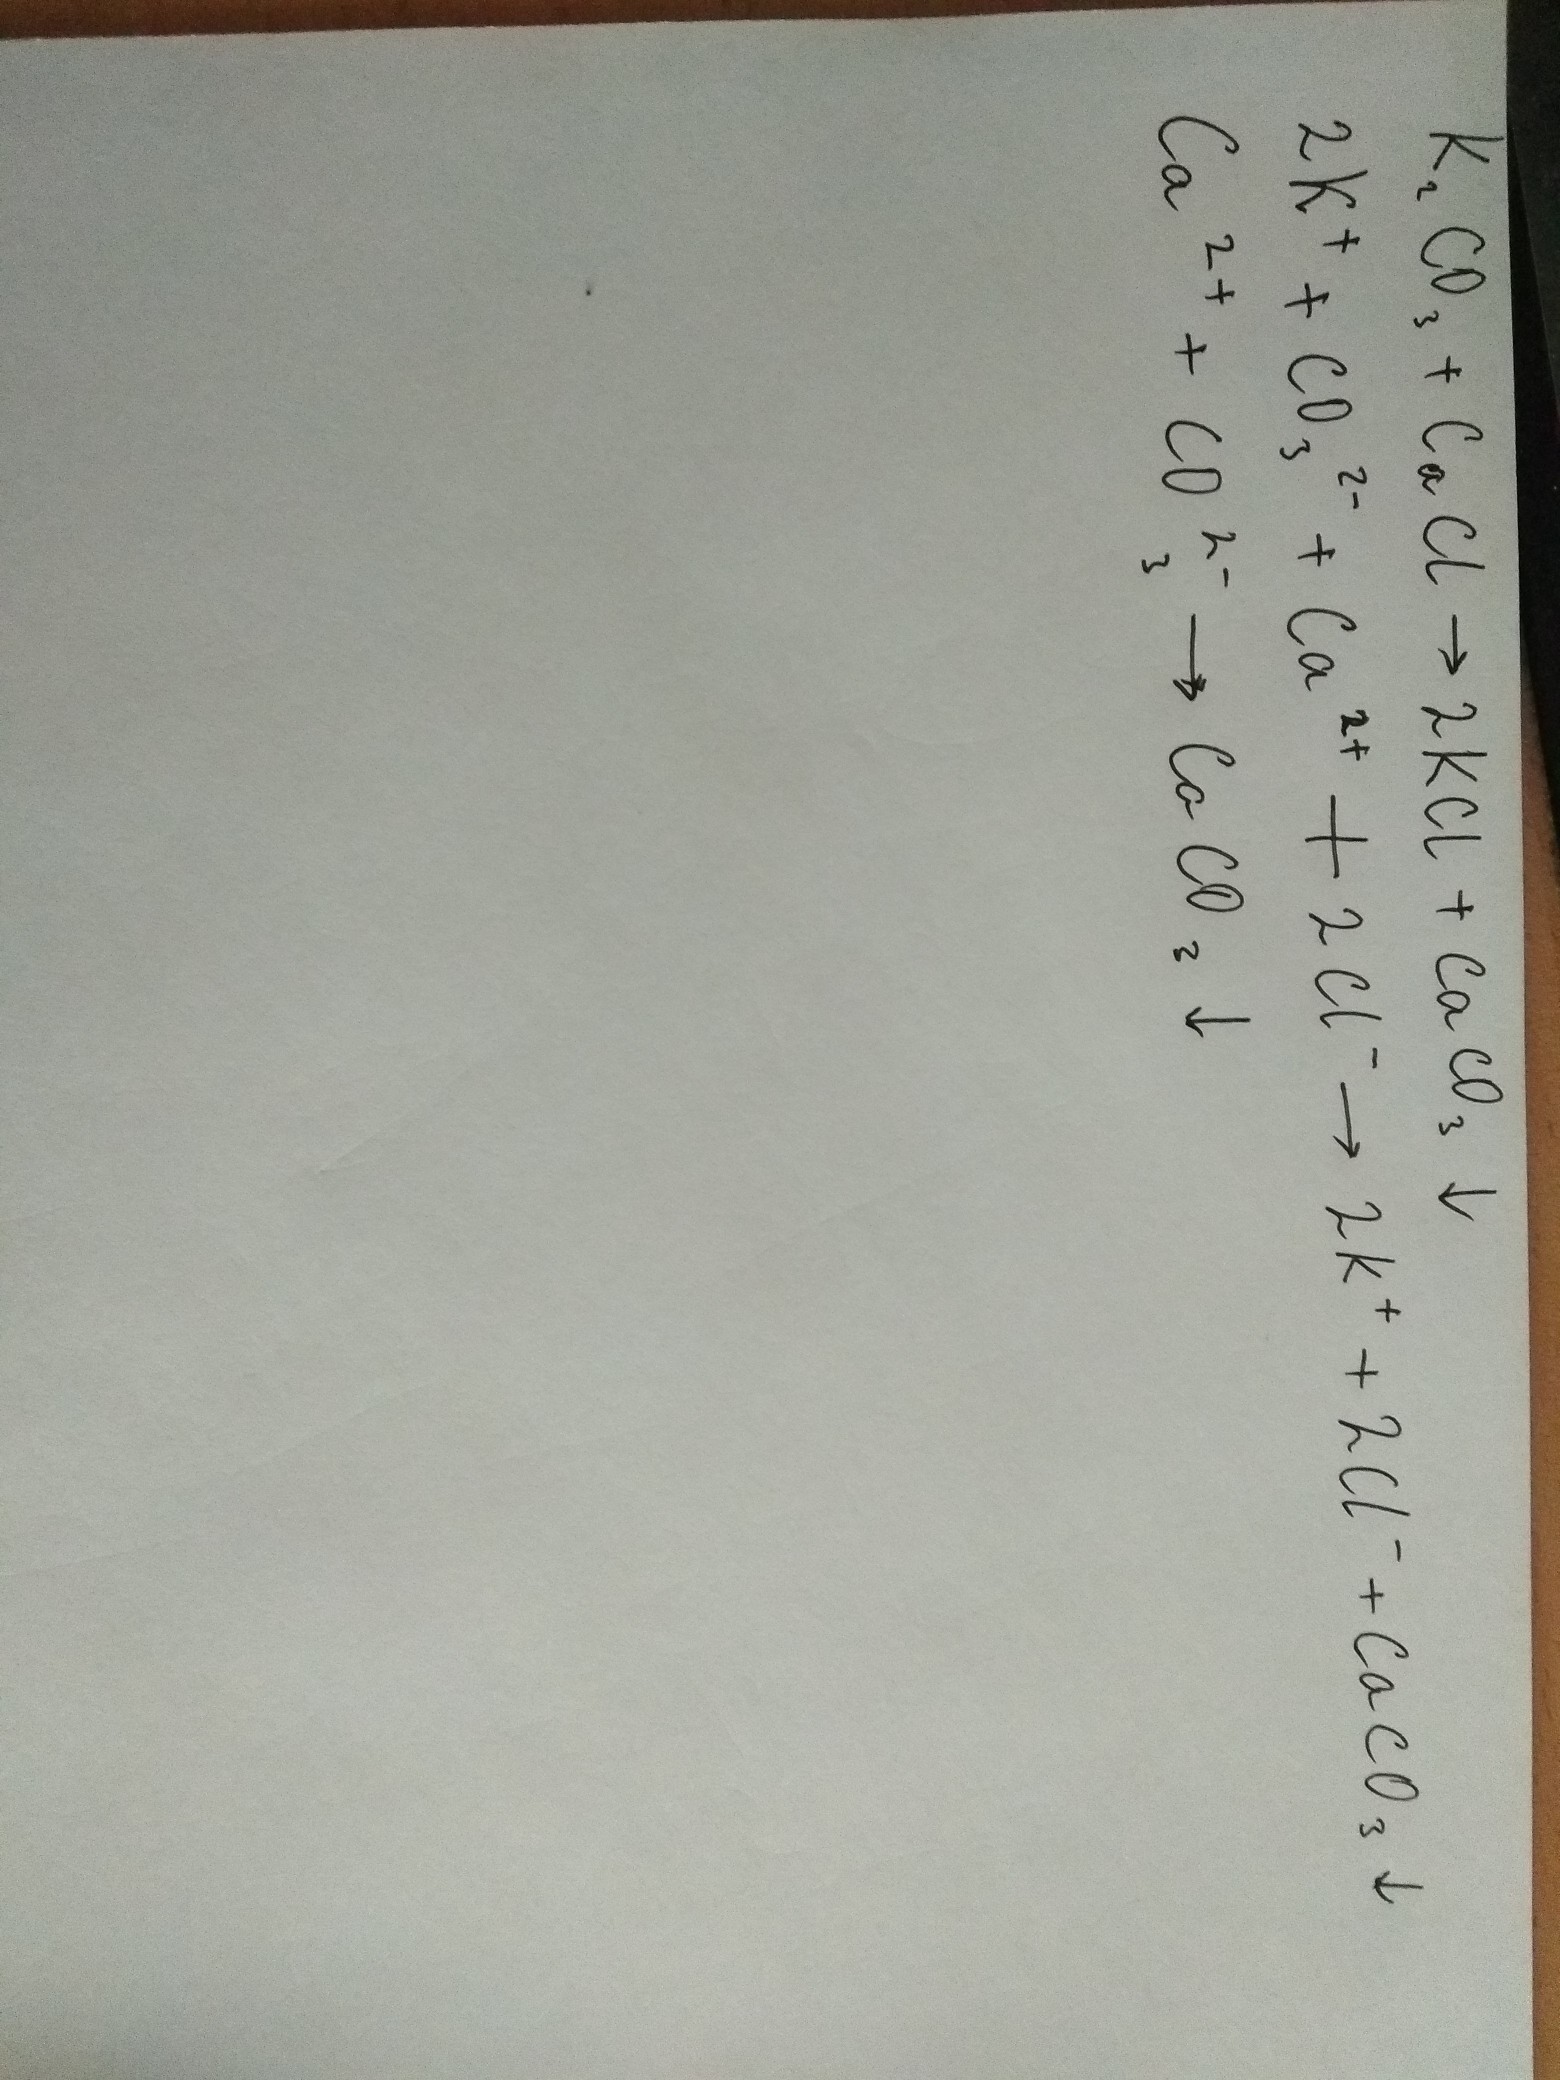 K₂CO₃ + CaCl → 2KCl + CaCO₃ ↓
2K⁺ + CO₃²⁻ + Ca²⁺ + 2Cl⁻ → 2K⁺ + 2Cl⁻ + CaCO₃ ↓
Ca²⁺ + CO₃²⁻ → CaCO₃ ↓